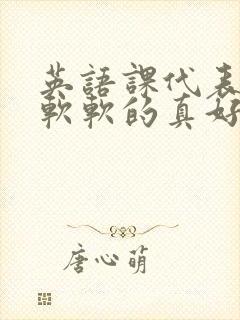 英語課代表
軟軟的真好
唐心萌